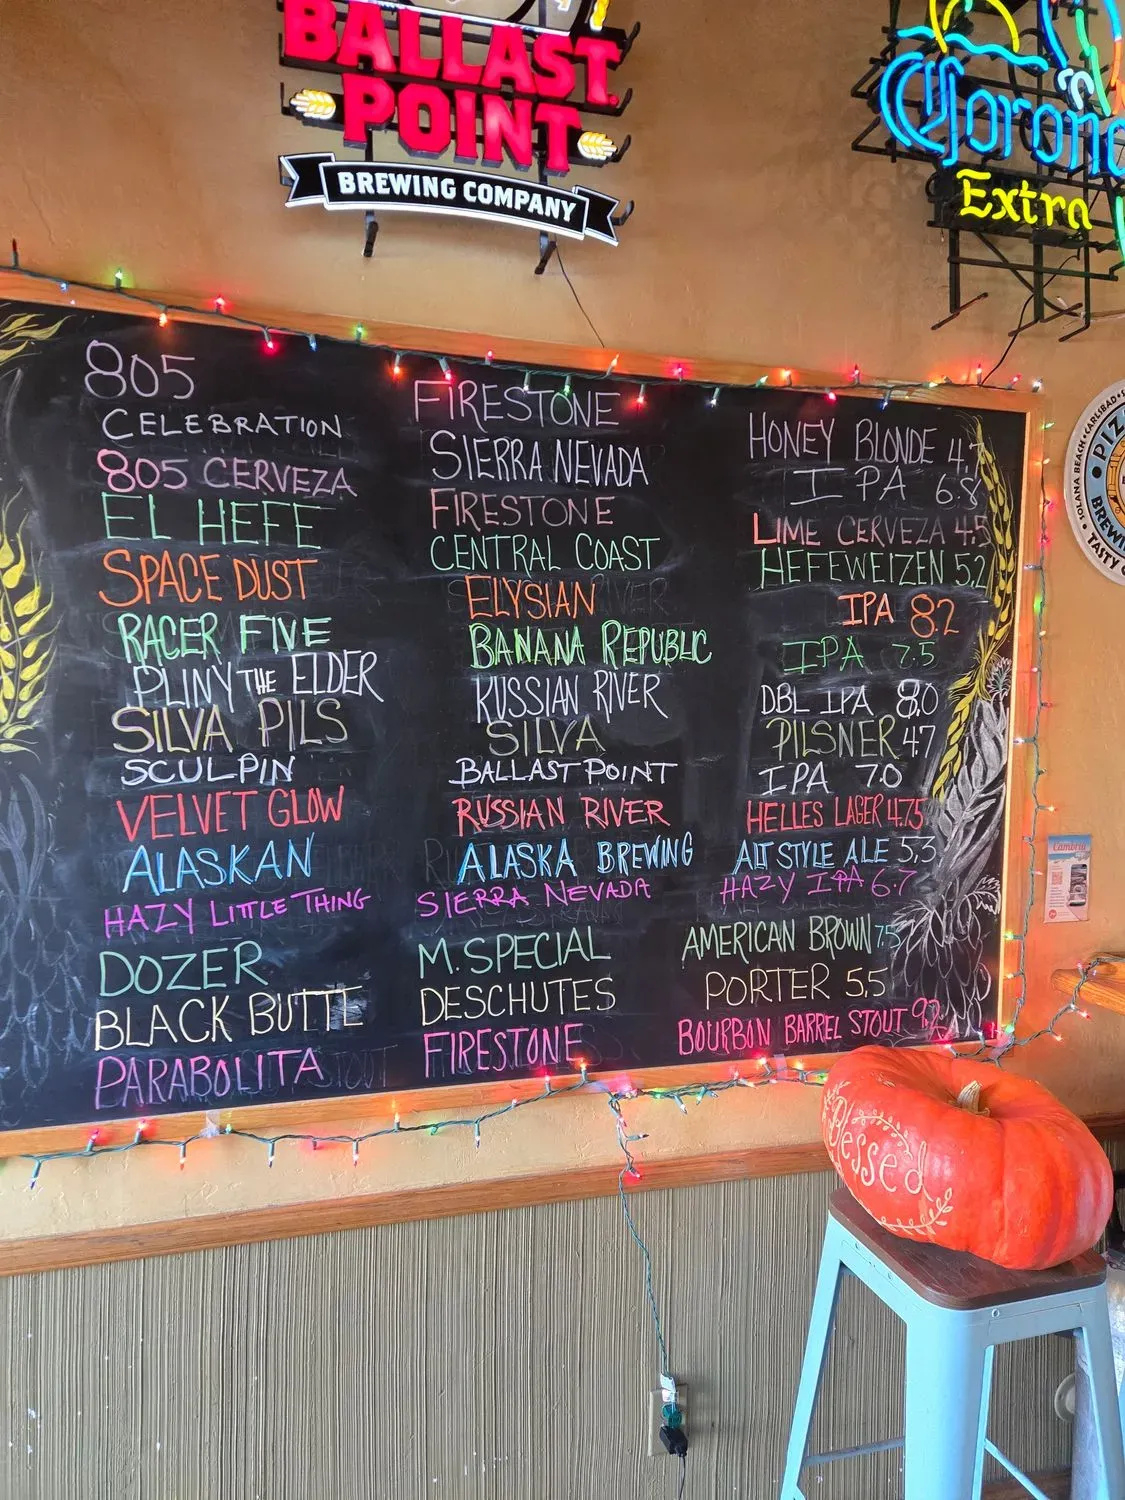 BALLAST
POINT
BREWING COMPANY
Corona
Extra
805 FIRESTONE HONEY BLONDE 4.7
CELEBRATION SIERRA NEVADA IPA 6.8
805 CERVEZA FIRESTONE LIME CERVEZA 4.5
EL HEFE CENTRAL COAST HEFEWEIZEN 5.2
SPACE DUST ELYSIAN IPA 8.2
RACER FIVE BANANA REPUBLIC IPA 7.5
PLINY THE ELDER RUSSIAN RIVER DBL IPA 8.0
SILVA PILS SILVA PILSNER 47
SCULPIN BALLAST POINT IPA 7.0
VELVET GLOW RUSSIAN RIVER HELLES LAGER 4.75
ALASKAN ALASKA BREWING ALT STYLE ALE 5.3
HAZY LITTLE THING SIERRA NEVADA HAZY IPA 6.7
DOZER M. SPECIAL AMERICAN BROWN 7.5
BLACK BUTTE DESCHUTES PORTER 5.5
PARABOLITA FIRESTONE BOURBON BARREL STOUT 9.2
SOLANA BEACH • CARLSBAD
PIZZ
BREW
TASTY
Cambria
Blessed